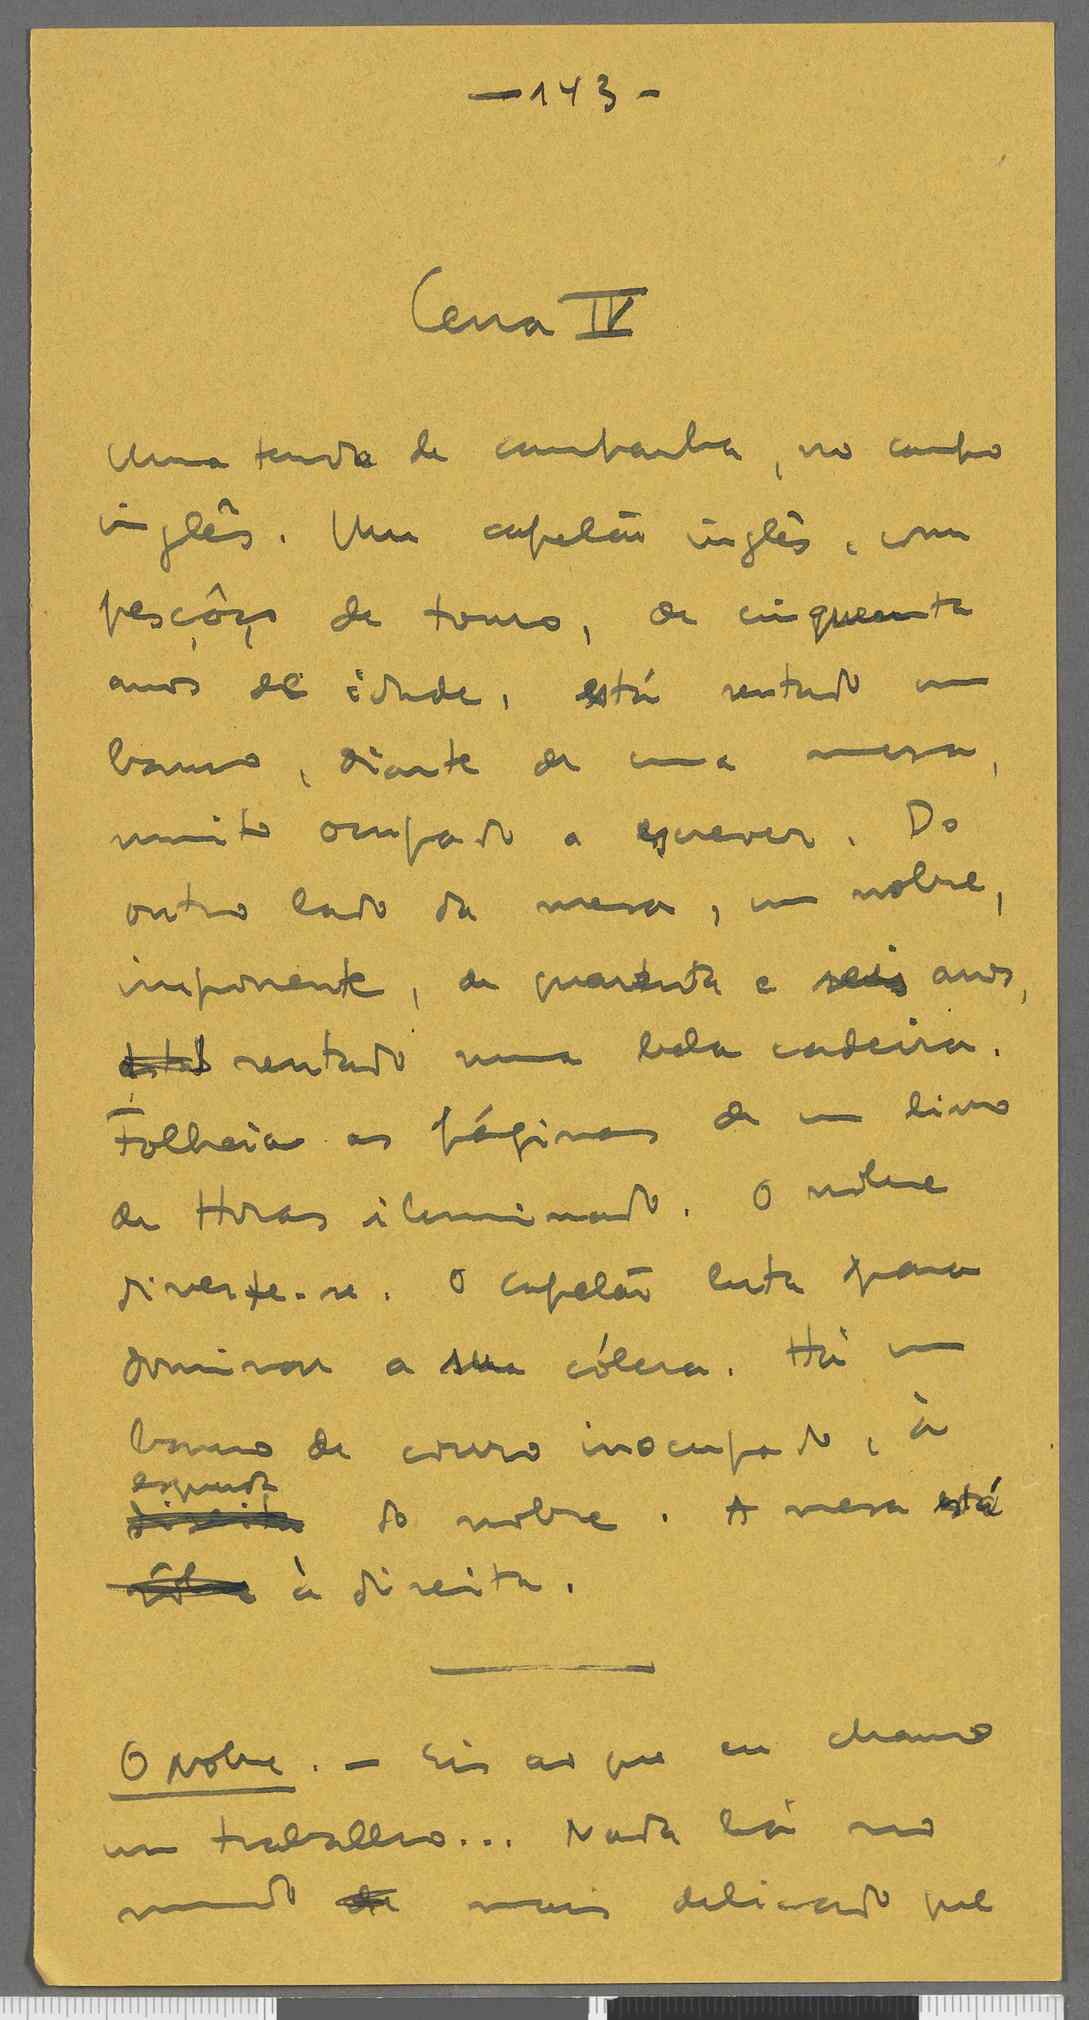 —143-
Cena IV
Uma tenda de campanha, no campo
inglês. Um capelão inglês, com
pescôço de touro, de cinquenta
anos de idade, está sentado num
banco, diante de uma mesa,
muito ocupado a escrever. Do
outro lado da mesa, um nobre,
imponente, de quarenta e seis anos,
sentado numa bela cadeira.
Folheia as páginas de um livro
de Horas iluminado. O nobre
diverte-se. O capelão luta para
dominar a sua cólera. Há um
banco de couro inocupado, à
esquerda
direita do nobre. A mesa está
à direita.
O Nobre. - Eis ao que eu chamo
um trabalho... Nada há no
mundo de mais delicado que